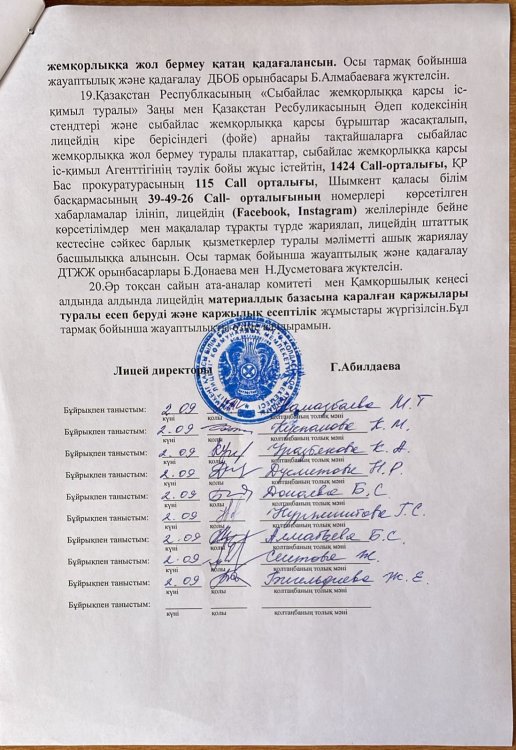 жемқорлыққа жол бермеу қатаң қадағалансын. Осы тармақ бойынша
жауаптылық және қадағалау ДБОБ орынбасары Б.Алмабаеваға жүктелсін.
19.Қазақстан Республкасының «Сыбайлас жемқорлыққа қарсы іс-
қимыл туралы» Заңы мен Қазақстан Ресбуликасының Әдеп кодексінің
стендтері және сыбайлас жемқорлыққа қарсы бұрыштар жасақталып,
лицейдің кіре берісіндегі (фойе) арнайы тақтайшаларға сыбайлас
жемқорлыққа жол бермеу туралы плакаттар, сыбайлас жемқорлыққа қарсы
іс-қимыл Агенттігінің тәулік бойы жұыс істейтін, 1424 Call-орталығы, ҚР
Бас прокуратурасының 115 Call орталығы, Шымкент қаласы білім
басқармасының 39-49-26 Call- орталығының номерлері көрсетілген
хабарламалар ілініп, лицейдің (Facebook, Instagram) желілерінде бейне
көрсетілімдер мен мақалалар тұрақты түрде жариялап, лицейдің штаттық
кестесіне сәйкес барлық қызметкерлер туралы мәліметті ашық жариялау
басшылыққа алынсын. Осы тармақ бойынша жауаптылық және қадағалау
ДТЖЖ орынбасарлары Б.Донаева мен Н.Дусметоваға жүктелсін.
20.Әр тоқсан сайын ата-аналар комитеті мен Қамқоршылық кеңесі
алдында алдында лицейдің материалдық базасына қаралған қаржылары
туралы есеп беруді және қаржылық есептілік жұмыстары жүргізілсін.Бұл
тармақ бойынша жауаптылықты өзіме қалдырамын.
Лицей директоры Г.Абилдаева
Бұйрықпен таныстым: 2.09 М.Т
күні қолы қолтаңбаның толық мәні
Бұйрықпен таныстым: 2.09 К.М.
күні қолы қолтаңбаның толық мәні
Бұйрықпен таныстым: 2.09 Уразбекова К.А.
күні қолы қолтаңбаның толық мәні
Бұйрықпен таныстым: 2.09 Дусметова Н.Р.
күні қолы қолтаңбаның толық мәні
Бұйрықпен таныстым: 2.09 Донаева Б.С
күні қолы қолтаңбаның толық мәні
Бұйрықпен таныстым: 2.09 Г.С.
күні қолы қолтаңбаның толық мәні
Бұйрықпен таныстым: 2.09 Алмабаева Б.С.
күні қолы қолтаңбаның толық мәні
Бұйрықпен таныстым: 2.09 Сеитова Ж.
күні қолы қолтаңбаның толық мәні
Бұйрықпен таныстым: 2.09 Ж.Е.
күні қолы қолтаңбаның толық мәні
Бұйрықпен таныстым:
күні қолы қолтаңбаның толық мәні